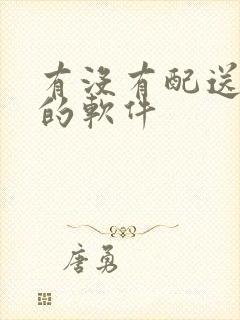 有沒有配送
的軟件
唐勇